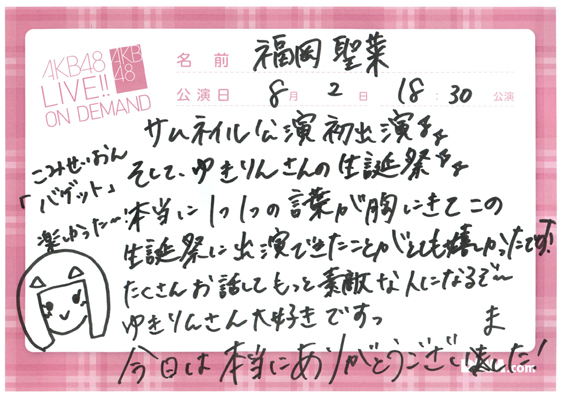 AKB48
LIVE!!
ON DEMAND
AKB
48
名前 福岡聖菜
公演日 8月 2日 18:30 公演
サムネイル公演初出演
そして、ゆきりんさんの生誕祭
こみせいおん
「バゲット」
楽しかった〜!
本当に1つ1つの言葉が胸にきてこの
生誕祭に出演できたことがとても嬉しかったです!
たくさんお話してもっと素敵な人になるぞ〜
ゆきりんさん大好きですっ
ま
今日は本当にありがとうございました!
.com